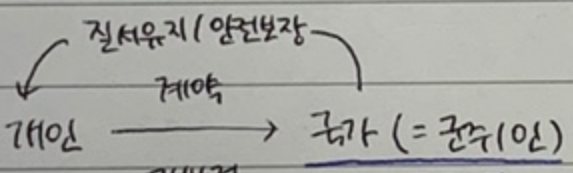 질서유지/안전보장
계약
개인 → 국가 (= 군주1인)